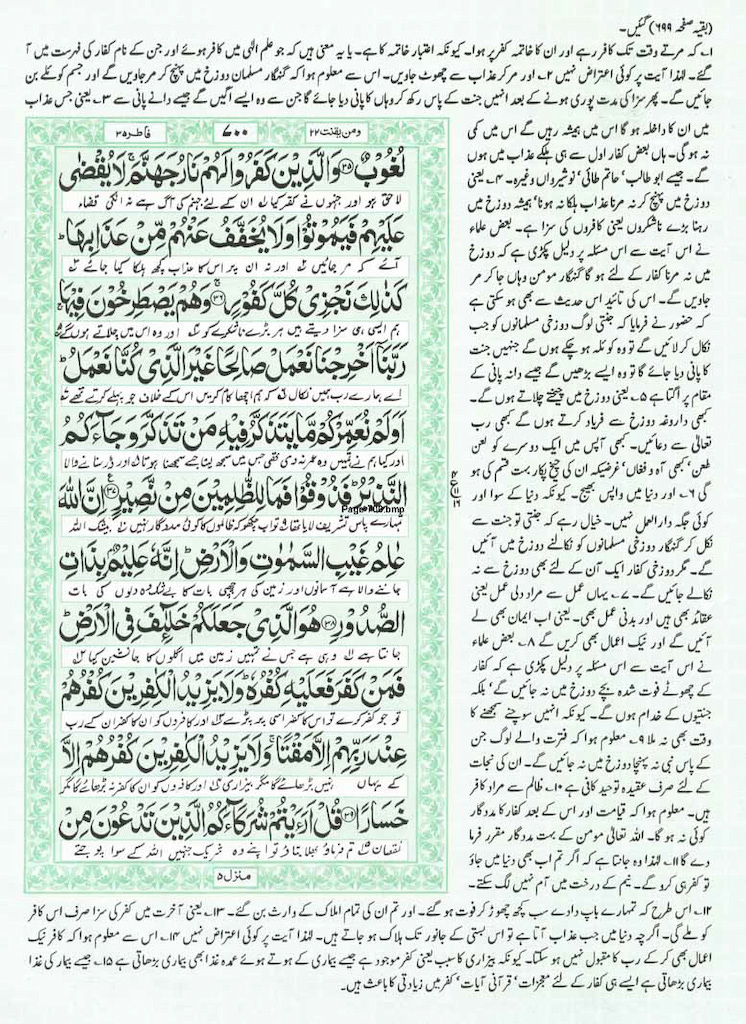 (بقیہ صفحہ ۶۹۹) گئیں۔
۱۔ کہ مرتے وقت تک کافر رہے اور ان کا خاتمہ کفر پر ہوا۔ کیونکہ اعتبار خاتمہ کا ہے۔ یا یہ معنی ہیں کہ جو علم الٰہی میں کافر ہوئے اور جن کے نام کفار کی فہرست میں آ
گئے۔ لہٰذا آیت پر کوئی اعتراض نہیں ۲۔ اور مر کر عذاب سے چھوٹ جاویں۔ اس سے معلوم ہوا کہ گنہگار مسلمان دوزخ میں پہنچ کر مر جاویں گے اور جسم کوئلے بن
جائیں گے۔ پھر سزا کی مدت پوری ہونے کے بعد انہیں جنت کے پاس رکھ کر وہاں کا پانی دیا جائے گا جن سے وہ ایسے اگیں گے جیسے دانے پانی سے ۳۔ یعنی جس عذاب
میں ان کا داخلہ ہو گا اس میں ہمیشہ رہیں گے اس میں کمی
نہ ہو گی۔ ہاں بعض کفار اول سے ہی ہلکے عذاب میں ہوں
گے۔ جیسے ابو طالب' حاتم طائی' نوشیرواں وغیرہ۔ ۴۔ یعنی
دوزخ میں پہنچ کر نہ مرنا عذاب ہلکا نہ ہونا' ہمیشہ دوزخ میں
رہنا بڑے ناشکروں یعنی کافروں کی سزا ہے۔ بعض علماء
نے اس آیت سے اس مسئلہ پر دلیل پکڑی ہے کہ دوزخ
میں نہ مرنا کفار کے لئے ہو گا گنہگار مومن وہاں جا کر مر
جاویں گے۔ اس کی تائید اس حدیث سے بھی ہو سکتی ہے
کہ حضور نے فرمایا کہ جنتی لوگ دوزخی مسلمانوں کو جب
نکال کر لائیں گے تو وہ کوئلہ ہو چکے ہوں گے جنہیں جنت
کا پانی دیا جائے گا تو وہ ایسے بڑھیں گے جیسے دانہ پانی کے
مقام پر اگتا ہے ۵۔ یعنی دوزخ میں چیختے چلاتے ہوں گے۔
کبھی داروغہ دوزخ سے فریاد کرتے ہوں گے کبھی رب
تعالٰی سے دعائیں۔ کبھی آپس میں ایک دوسرے کو لعن
طعن' کبھی آہ و فغاں' غرضیکہ ان کی چیخ پکار بہت قسم کی ہو
گی ۶۔ اور دنیا میں واپس بھیج۔ کیونکہ دنیا کے سوا اور
کوئی جگہ دارالعمل نہیں۔ خیال رہے کہ جنتی تو جنت سے
نکل کر گنہگار دوزخی مسلمانوں کو نکالنے دوزخ میں آئیں
گے۔ مگر دوزخی کفار ایک آن کے لئے بھی دوزخ سے نہ
نکالے جائیں گے۔ ۷۔ یہاں عمل سے مراد دلی عمل یعنی
عقائد بھی ہیں اور بدنی عمل بھی۔ یعنی اب ایمان بھی لے
آئیں گے اور نیک اعمال بھی کریں گے ۸۔ بعض علماء
نے اس آیت سے اس مسئلہ پر دلیل پکڑی ہے کہ کفار
کے چھوٹے فوت شدہ بچے دوزخ میں نہ جائیں گے' بلکہ
جنتیوں کے خدام ہوں گے۔ کیونکہ انہیں سوچنے سمجھنے کا
وقت بھی نہ ملا ۹۔ معلوم ہوا کہ فترت والے لوگ جن
کے پاس نبی نہ پہنچا دوزخ میں نہ جائیں گے۔ ان کی نجات
کے لئے صرف عقیدہ توحید کافی ہے ۱۰۔ ظالم سے مراد کافر
ہیں۔ معلوم ہوا کہ قیامت اور اس کے بعد کفار کا مددگار
کوئی نہ ہو گا۔ اللہ تعالٰی مومن کے بہت مددگار مقرر فرما
دے گا ۱۱۔ لہٰذا وہ جانتا ہے کہ اگر تم اب بھی دنیا میں جاؤ
تو کفر ہی کرو گے۔ نیم کے درخت میں آم نہیں لگ سکتے۔
ومن یقنت ۲۲ ۷۰۰ فاطر ۳۵
لُغُوْبٌ ﴿۳۵﴾ وَالَّذِيْنَ كَفَرُوْا لَهُمْ نَارُ جَهَنَّمَ ۚ لَا يُقْضٰى
لاحق ہو اور جنہوں نے کفر کیا ان کے لئے جہنم کی آگ ہے نہ انکی قضاء
عَلَيْهِمْ فَيَمُوْتُوْا وَلَا يُخَفَّفُ عَنْهُمْ مِّنْ عَذَابِهَا ؕ
آئے کہ مر جائیں اور نہ ان پر اس کا عذاب کچھ ہلکا کیا جائے
كَذٰلِكَ نَجْزِيْ كُلَّ كَفُوْرٍ ﴿۳۶﴾ وَهُمْ يَصْطَرِخُوْنَ فِيْهَا ۚ
ہم ایسی ہی سزا دیتے ہیں ہر بڑے ناشکرے کو اور وہ اس میں چلاتے ہوں گے
رَبَّنَا اَخْرِجْنَا نَعْمَلْ صَالِحًا غَيْرَ الَّذِيْ كُنَّا نَعْمَلُ ؕ
اے ہمارے رب ہمیں نکال کہ ہم اچھا کام کریں اس کے خلاف جو پہلے کرتے تھے
اَوَلَمْ نُعَمِّرْكُمْ مَّا يَتَذَكَّرُ فِيْهِ مَنْ تَذَكَّرَ وَجَآءَكُمُ
اور کیا ہم نے تمہیں وہ عمر نہ دی تھی جس میں سمجھ لیتا جسے سمجھنا ہوتا اور ڈر سنانے والا
النَّذِيْرُ ؕ فَذُوْقُوْا فَمَا لِلظّٰلِمِيْنَ مِنْ نَّصِيْرٍ ﴿۳۷﴾ اِنَّ اللّٰهَ
تمہارے پاس تشریف لایا تھا تو اب چکھو کہ ظالموں کا کوئی مددگار نہیں بیشک اللہ
Page-700.bmp
عٰلِمُ غَيْبِ السَّمٰوٰتِ وَالْاَرْضِ ؕ اِنَّهٗ عَلِيْمٌۢ بِذَاتِ
جاننے والا ہے آسمانوں اور زمین کی ہر چھپی بات کا بے شک وہ دلوں کی بات
الصُّدُوْرِ ﴿۳۸﴾ هُوَ الَّذِيْ جَعَلَكُمْ خَلٰٓئِفَ فِي الْاَرْضِ ؕ
جانتا ہے وہی ہے جس نے تمہیں زمین میں اگلوں کا جانشین کیا
فَمَنْ كَفَرَ فَعَلَيْهِ كُفْرُهٗ ؕ وَلَا يَزِيْدُ الْكٰفِرِيْنَ كُفْرُهُمْ
تو جو کفر کرے تو اس کا کفر اسی پر پڑے اور کافروں کو ان کا کفر ان کے رب
عِنْدَ رَبِّهِمْ اِلَّا مَقْتًا ۚ وَلَا يَزِيْدُ الْكٰفِرِيْنَ كُفْرُهُمْ اِلَّا
کے یہاں نہیں بڑھائے گا مگر بیزاری اور کافروں کو ان کا کفر نہ بڑھائے گا مگر
خَسَارًا ﴿۳۹﴾ قُلْ اَرَءَيْتُمْ شُرَكَآءَكُمُ الَّذِيْنَ تَدْعُوْنَ مِنْ
نقصان تم فرماؤ بھلا بتاؤ تو اپنے وہ شریک جنہیں اللہ کے سوا پوجتے
منزل ۵
۱۲۔ اس طرح کہ تمہارے باپ دادے سب کچھ چھوڑ کر فوت ہو گئے۔ اور تم ان کی تمام املاک کے وارث بن گئے۔ ۱۳۔ یعنی آخرت میں کفر کی سزا صرف اس کافر
کو ملے گی۔ اگرچہ دنیا میں جب عذاب آتا ہے تو اس بستی کے جانور تک ہلاک ہو جاتے ہیں۔ لہٰذا آیت پر کوئی اعتراض نہیں ۱۴۔ اس سے معلوم ہوا کہ کافر نیک
اعمال بھی کر کے رب کا مقبول نہیں ہو سکتا۔ کیونکہ بیزاری کا سبب یعنی کفر موجود ہے جیسے بیماری کے ہوتے ہوئے عمدہ غذا بھی بیماری بڑھاتی ہے ۱۵۔ جیسے بیمار کی غذا
بیماری بڑھاتی ہے ایسے ہی کفار کے لئے معجزات' قرآنی آیات' کفر میں زیادتی کا باعث ہیں۔